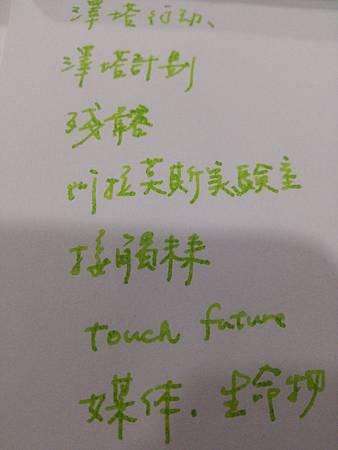 澤塔行动、
澤塔計劃
残響
阿拉莫斯実験室
接觸未来
touch future
媒体．生命物